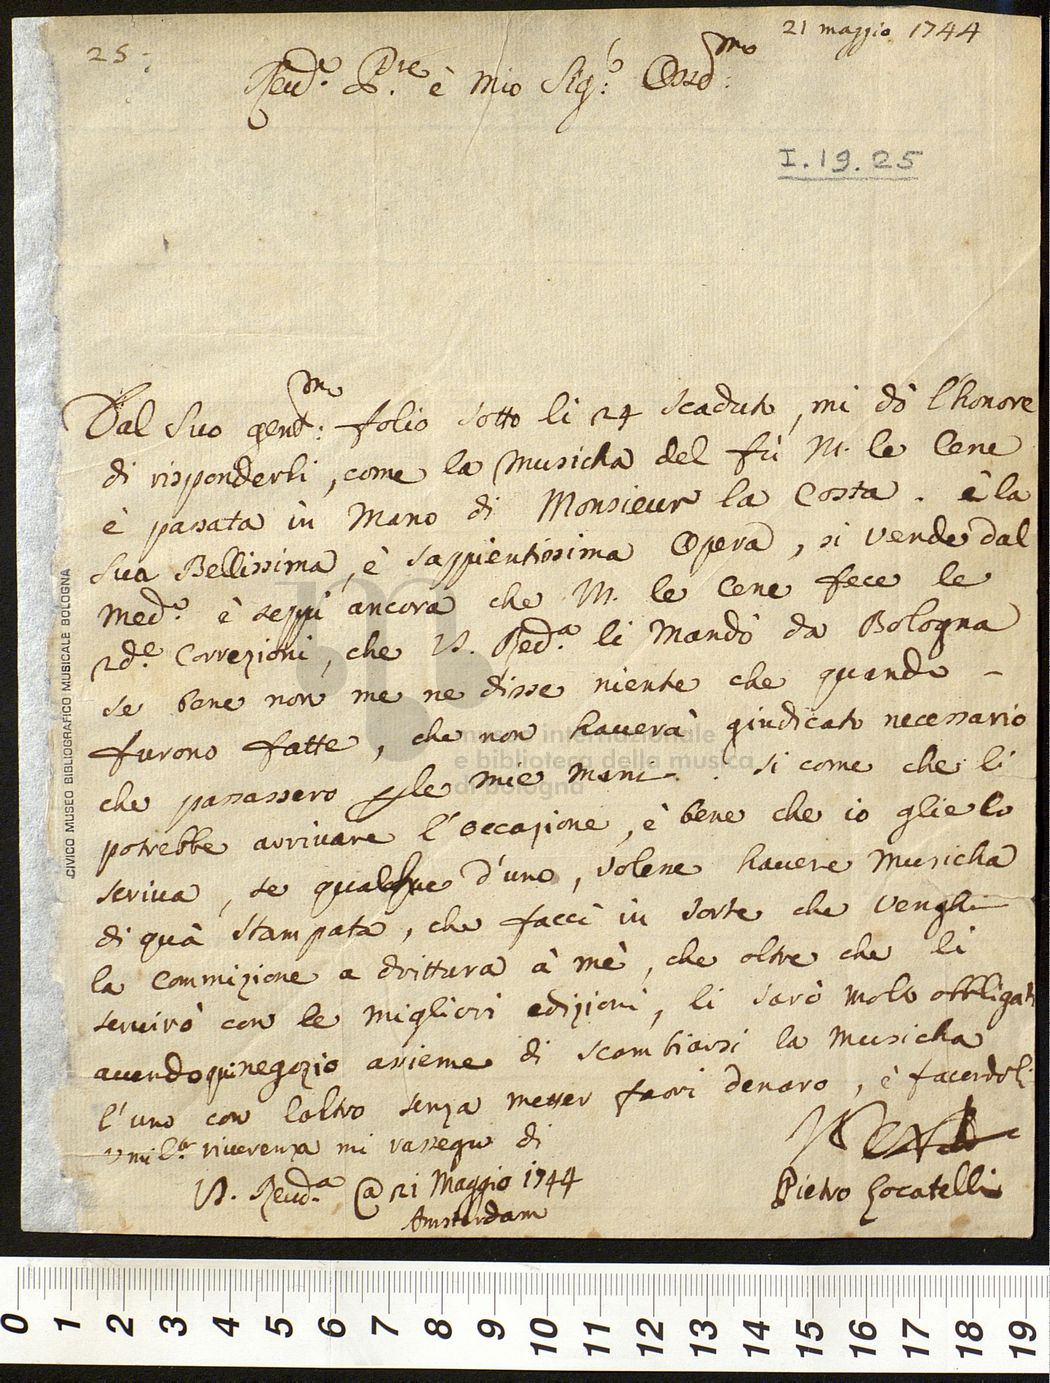 21 maggio 1744
25:
Reud.ª P.re è mio Sig.r Oss.mo
I.19.25
Dal Suo gent.mo folio sotto li 24 scaduto, mi dò l'honore
di risponderli, come la Musicha del fù M. le Cene
è passata in Mano di Monsieur la Costa. è la
sua Bellissima, è sappientissima Opera, si vende dal
Med.º è seppi ancora che M. le Cene fece le
correzioni, che V. Red.ª li mandò da Bologna
se bene non me ne disse niente che quando -
furono fatte, che non hauerà giudicato necessario
che passassero le mie mani. si come che li
potrebbe arrivare l'occazione, è bene che io glielo
scriva, se qualche d'uno, volene havere Musicha
di quà stampata, che facci in sorte che venghi
la Commizione a drittura à mè, che oltre che li
seruirò con le migliori edizioni, li sarò molto obbligato
auendo qui negozio assieme di scambiarsi la Musicha
l'uno con l'altro senza metter fuori denaro, è facendoli
umil.ª riverenza mi rassegno di
V. Reud.ª @ 21 Maggio 1744
Amsterdam
Pietro Locatelli
CIVICO MUSEO BIBLIOGRAFICO MUSICALE BOLOGNA
museo internazionale
e biblioteca della musica
di bologna
0 1 2 3 4 5 6 7 8 9 10 11 12 13 14 15 16 17 18 19